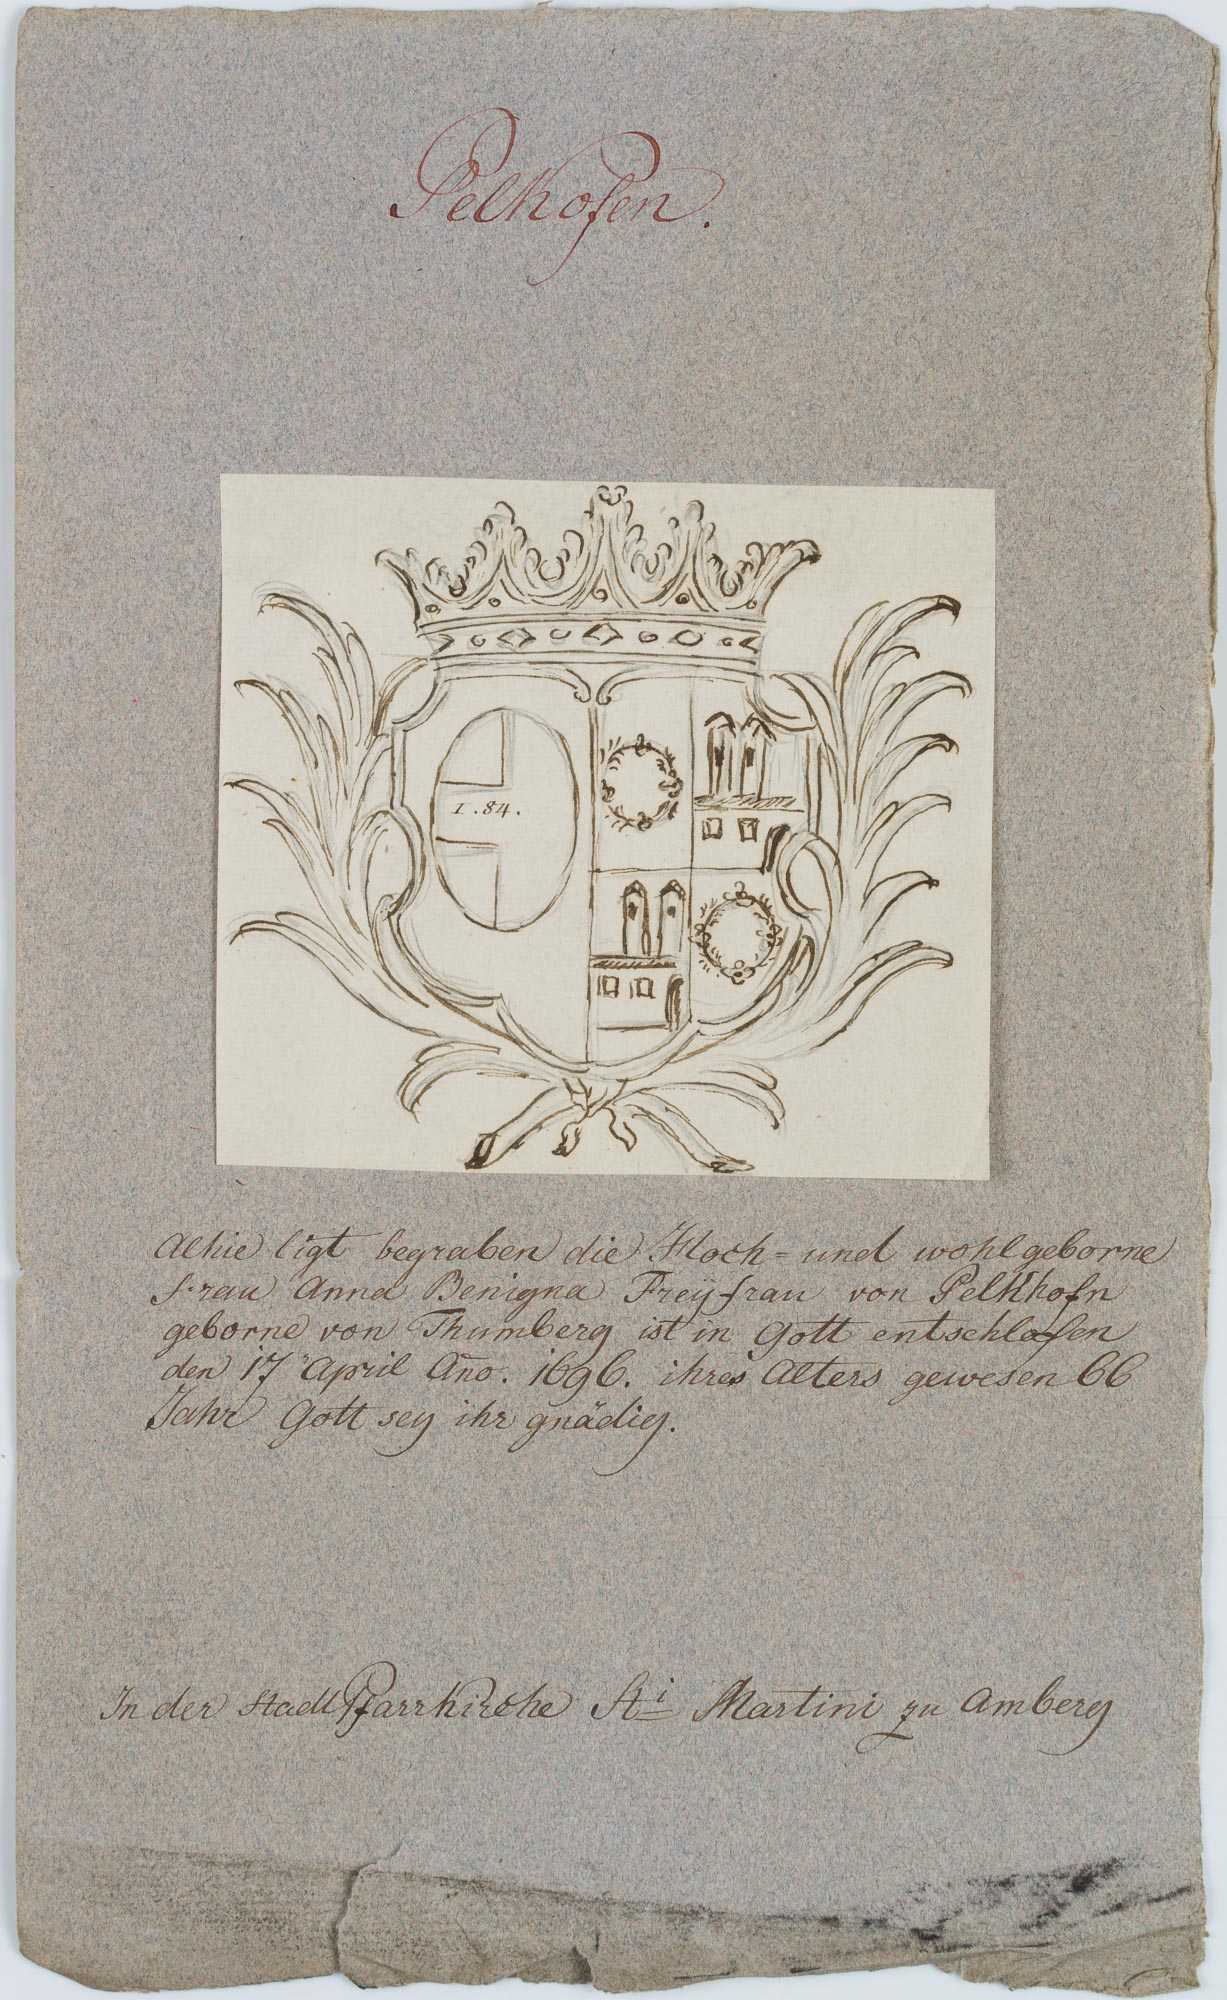 Pelkofen.
1.84.
Alhie ligt begraben die Hoch= und wohlgeborne
Frau Anna Benigna Freÿfrau von Pelkhofn
geborne von Thumberg ist in Gott entschlafen
den 17 April Año. 1696. ihres Alters gewesen 66
Jahr Gott sey ihr gnädig.
In der Stadt Pfarrkirche Sti Martini zu Amberg